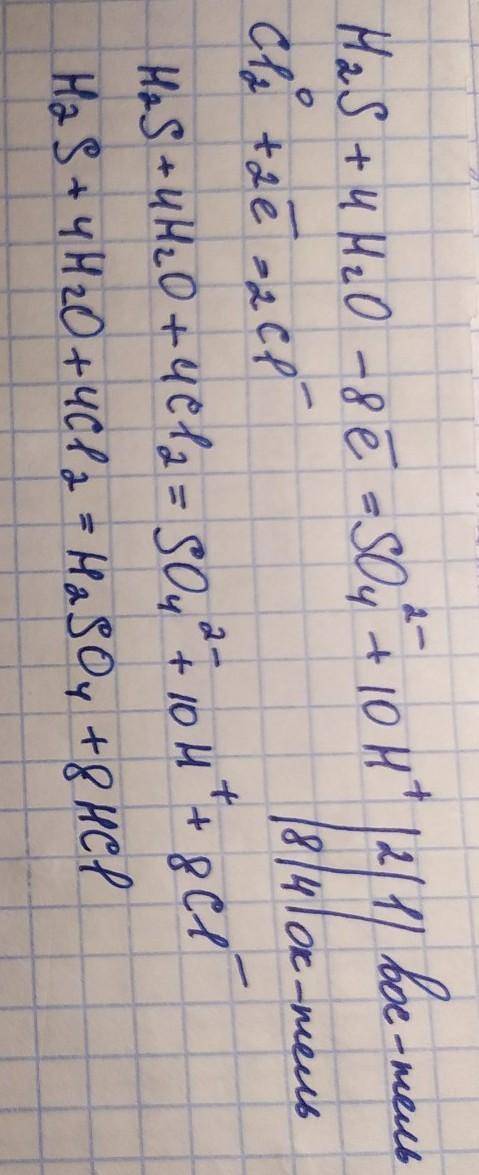 H₂S + 4H₂O − 8ē = SO₄²⁻ + 10H⁺ |2|1| вос-тель
Cl₂⁰ + 2ē = 2Cl⁻ |8|4| ок-тель
H₂S + 4H₂O + 4Cl₂ = SO₄²⁻ + 10H⁺ + 8Cl⁻
H₂S + 4H₂O + 4Cl₂ = H₂SO₄ + 8HCl